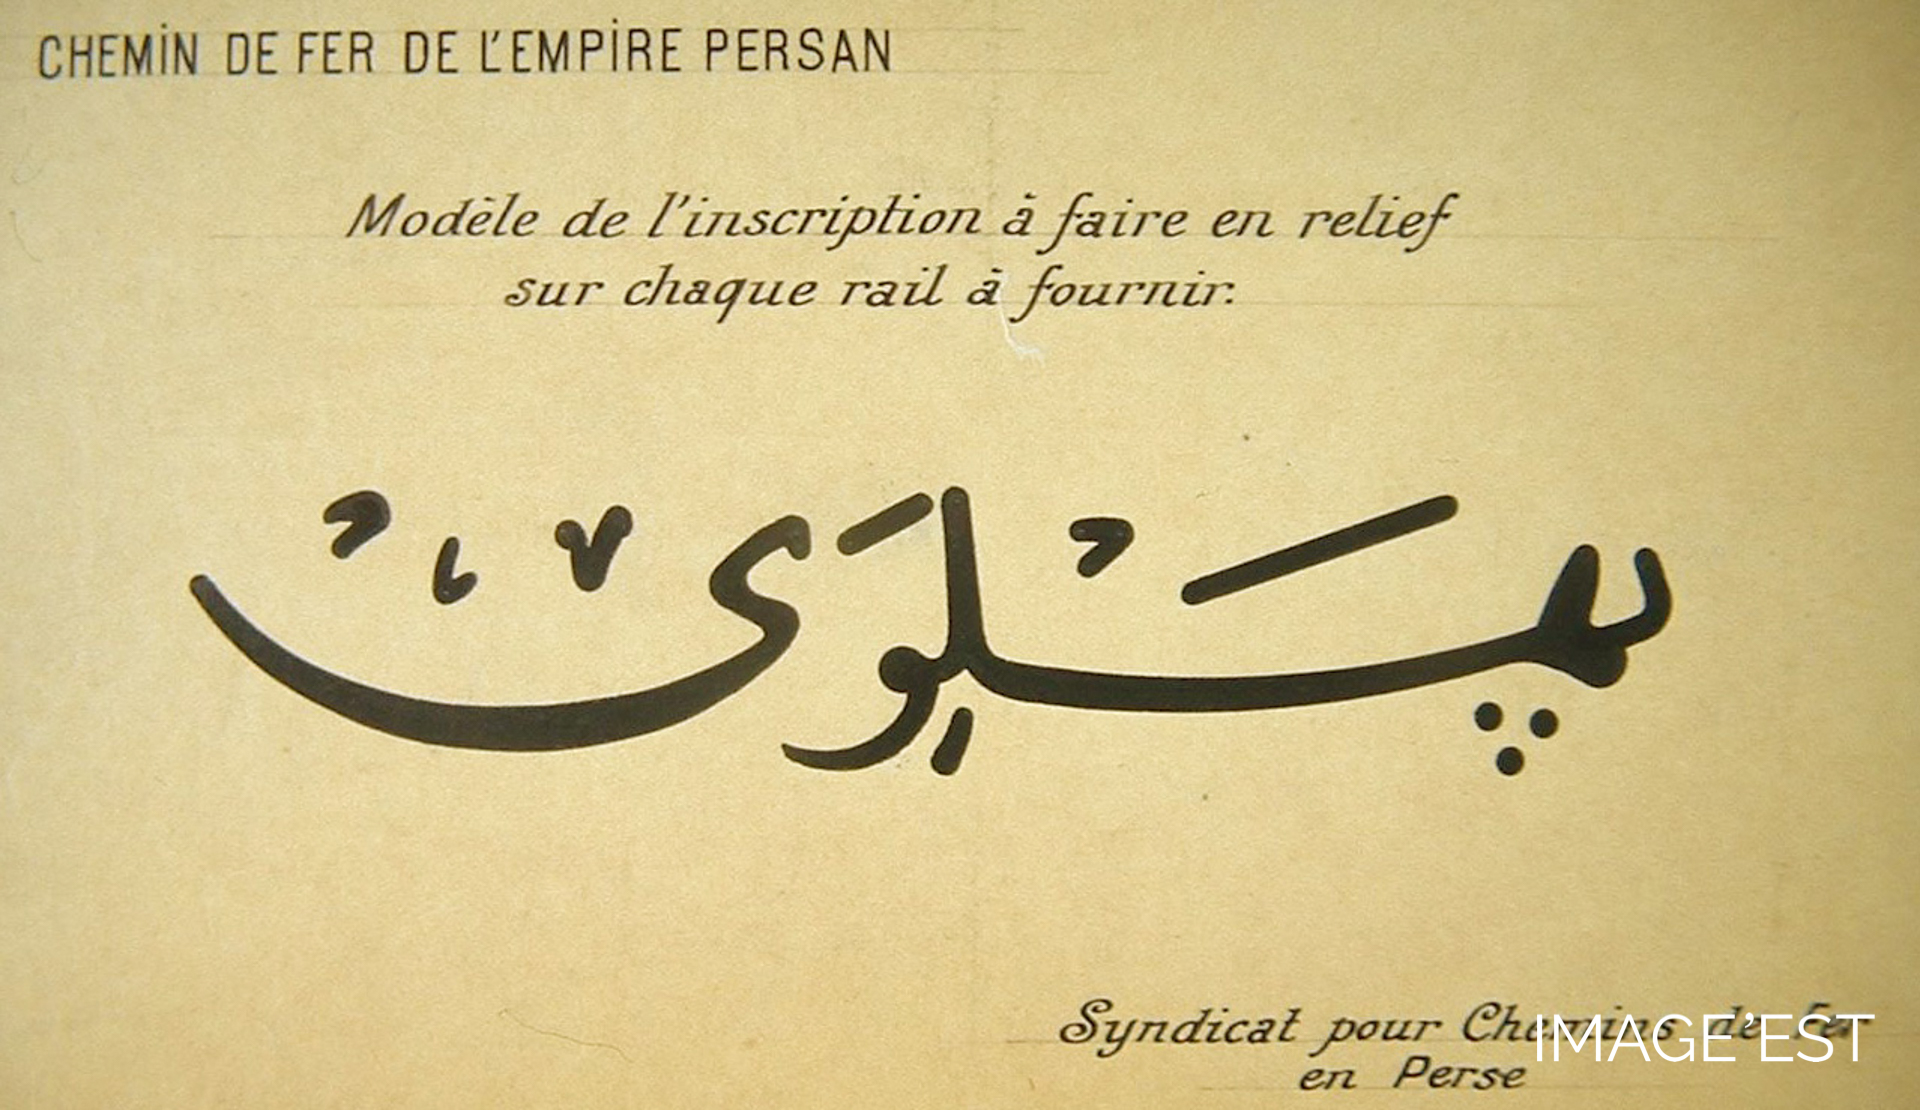 CHEMIN DE FER DE L'EMPIRE PERSAN
Modèle de l'inscription à faire en relief
sur chaque rail à fournir.
پهلوی
Syndicat pour Chemins de Fer
en Perse
IMAGE'EST